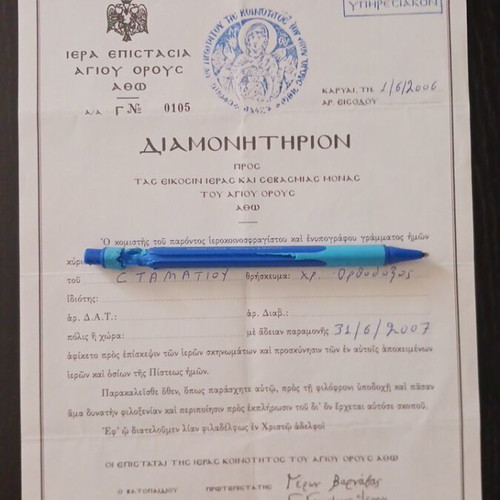 ΥΠΗΡΕΣΙΑΚΟΝ
ΙΕΡΑ ΕΠΙΣΤΑΣΙΑ
ΑΓΙΟΥ ΟΡΟΥΣ
ΑΘΩ
Α/Α Γ № 0105
ΚΑΡΥΑΙ, ΤΗ 1/6/2006
ΑΡ. ΕΙΣΟΔΟΥ
ΔΙΑΜΟΝΗΤΗΡΙΟΝ
ΠΡΟΣ
ΤΑΣ ΕΙΚΟΣΙΝ ΙΕΡΑΣ ΚΑΙ ΣΕΒΑΣΜΙΑΣ ΜΟΝΑΣ
ΤΟΥ ΑΓΙΟΥ ΟΡΟΥΣ
ΑΘΩ
Ὁ κομιστὴς τοῦ παρόντος ἱεροκοινοσφραγίστου καὶ ἐνυπογράφου γράμματος ἡμῶν
τοῦ ΣΤΑΜΑΤΙΟΥ θρήσκευμα: Χρ. Ορθόδοξος
ἰδιότης:
ἀρ. Δ.Α.Τ.: ἀρ. Διαβ.:
πόλις ἢ χώρα: μὲ ἄδειαν παραμονῆς 31/6/2007
ἀφίκετο πρὸς ἐπίσκεψιν τῶν ἱερῶν σκηνωμάτων καὶ προσκύνησιν τῶν ἐν αὐτοῖς ἀποκειμένων
ἱερῶν καὶ ὁσίων τῆς Πίστεως ἡμῶν.
Παρακαλεῖσθε ὅθεν, ὅπως παράσχητε αὐτῷ, πρὸς τῇ φιλόφρονι ὑποδοχῇ καὶ πᾶσαν
ἅμα δυνατὴν φιλοξενίαν καὶ περιποίησιν πρὸς ἐκπλήρωσιν τοῦ δι' ὃν ἔρχεται αὐτόσε σκοποῦ.
Ἐφ' ᾧ διατελοῦμεν λίαν φιλαδέλφως ἐν Χριστῷ ἀδελφοὶ
ΟΙ ΕΠΙΣΤΑΤΑΙ ΤΗΣ ΙΕΡΑΣ ΚΟΙΝΟΤΗΤΟΣ ΤΟΥ ΑΓΙΟΥ ΟΡΟΥΣ ΑΘΩ
Ο ΒΑΤΟΠΑΙΔΙΟΥ ΠΡΩΤΕΠΙΣΤΑΤΗΣ Γέρων Βαρνάβας